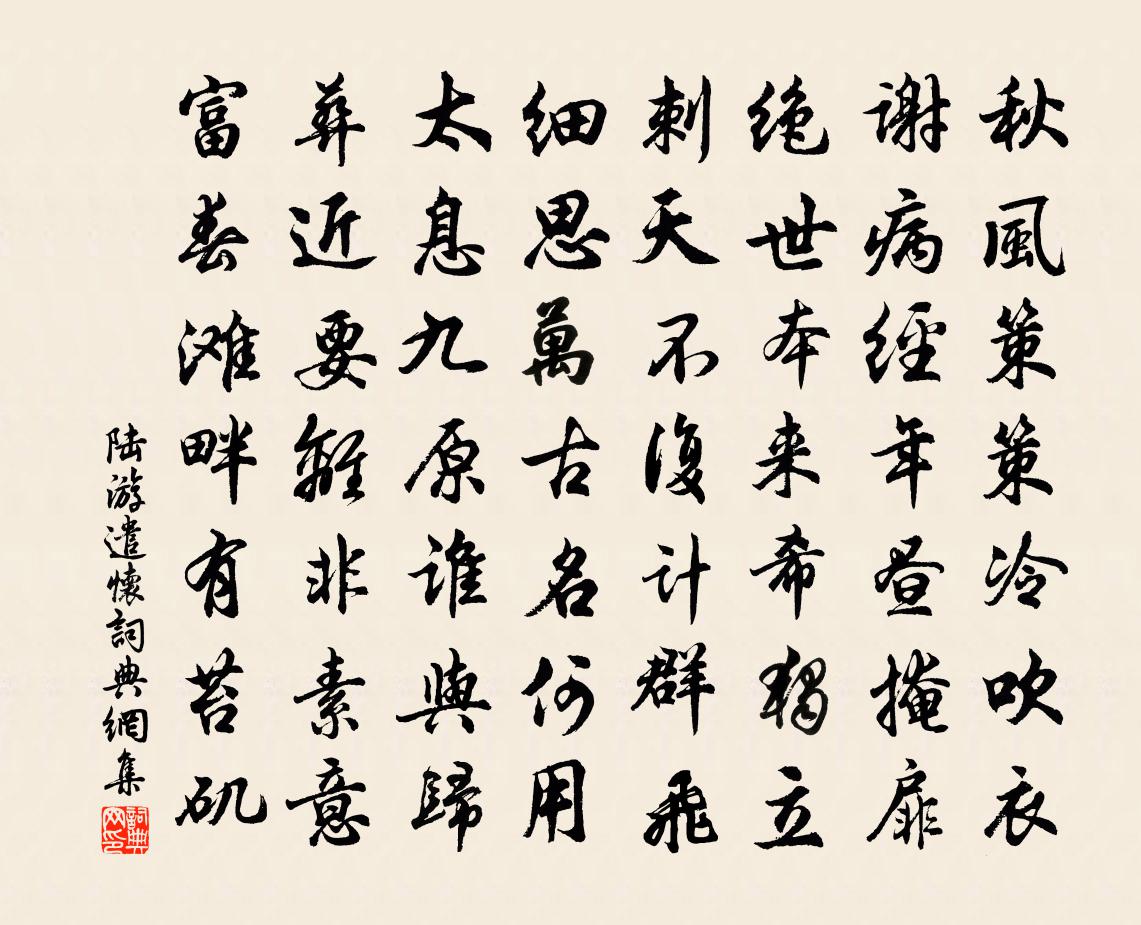 秋風策策冷吹衣
謝病經年昼掩扉
绝世本来希獨立
刺天不復计群飛
细思萬古名何用
太息九原谁與歸
葬近要離非素意
富春滩畔有苔矶
陆游遣懷詞典網集
詞典网印